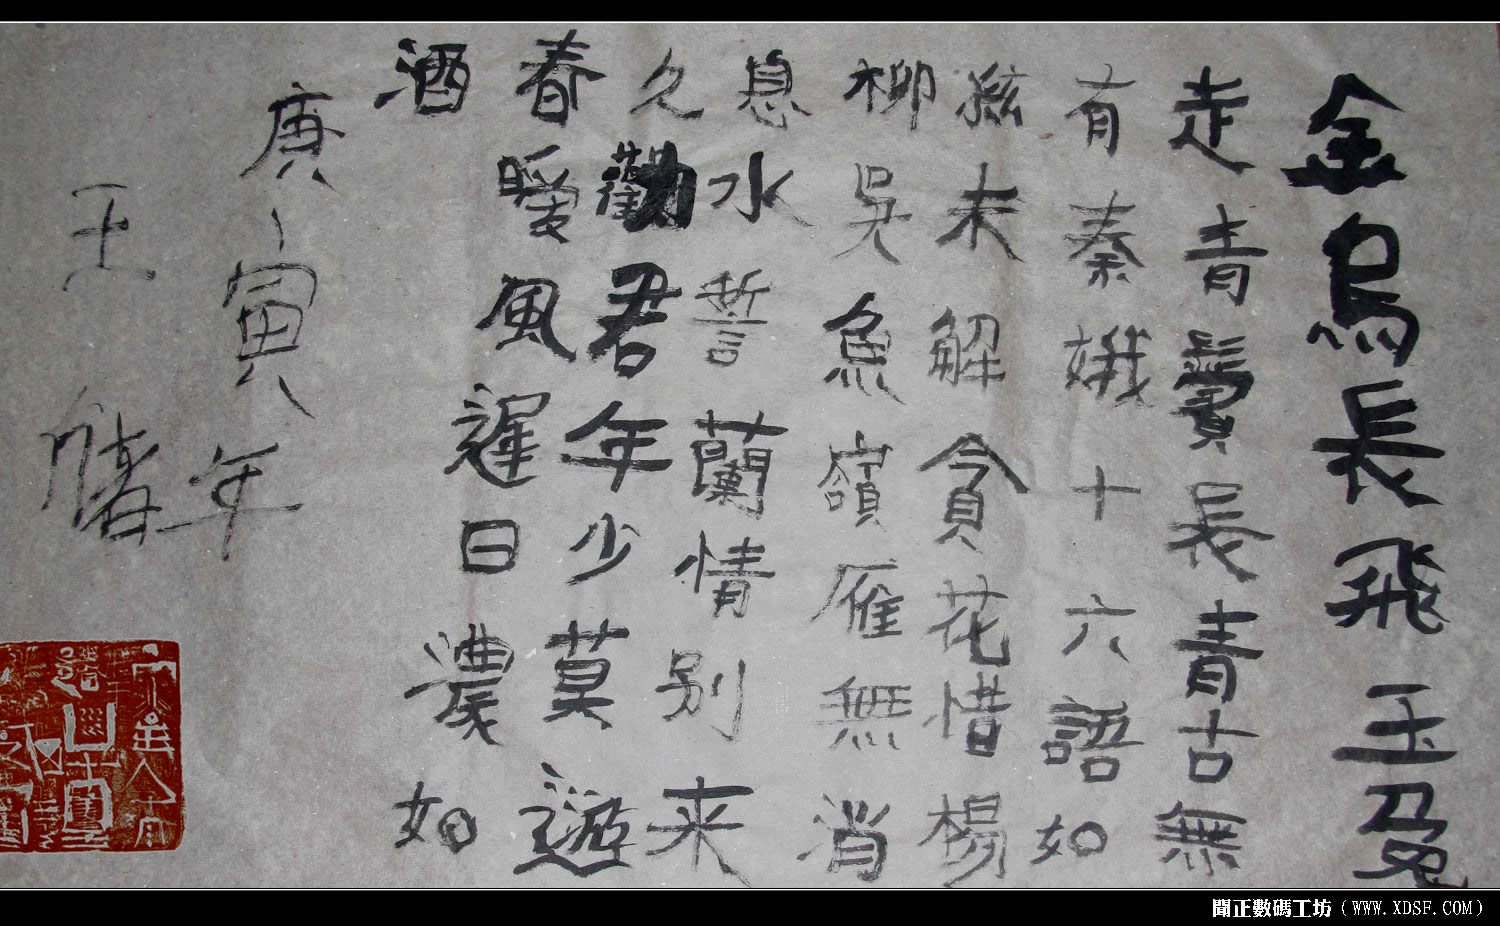 金烏長飛玉兔
走青鬢長青古無
有秦娥十六語如
絃未解貪花惜楊
柳吳魚嶺雁無消
息水誓蘭情别来
久勸君年少莫遊
春暖風遲日濃如
酒
庚寅年
聞正數碼工坊（WWW.XDSF.COM）